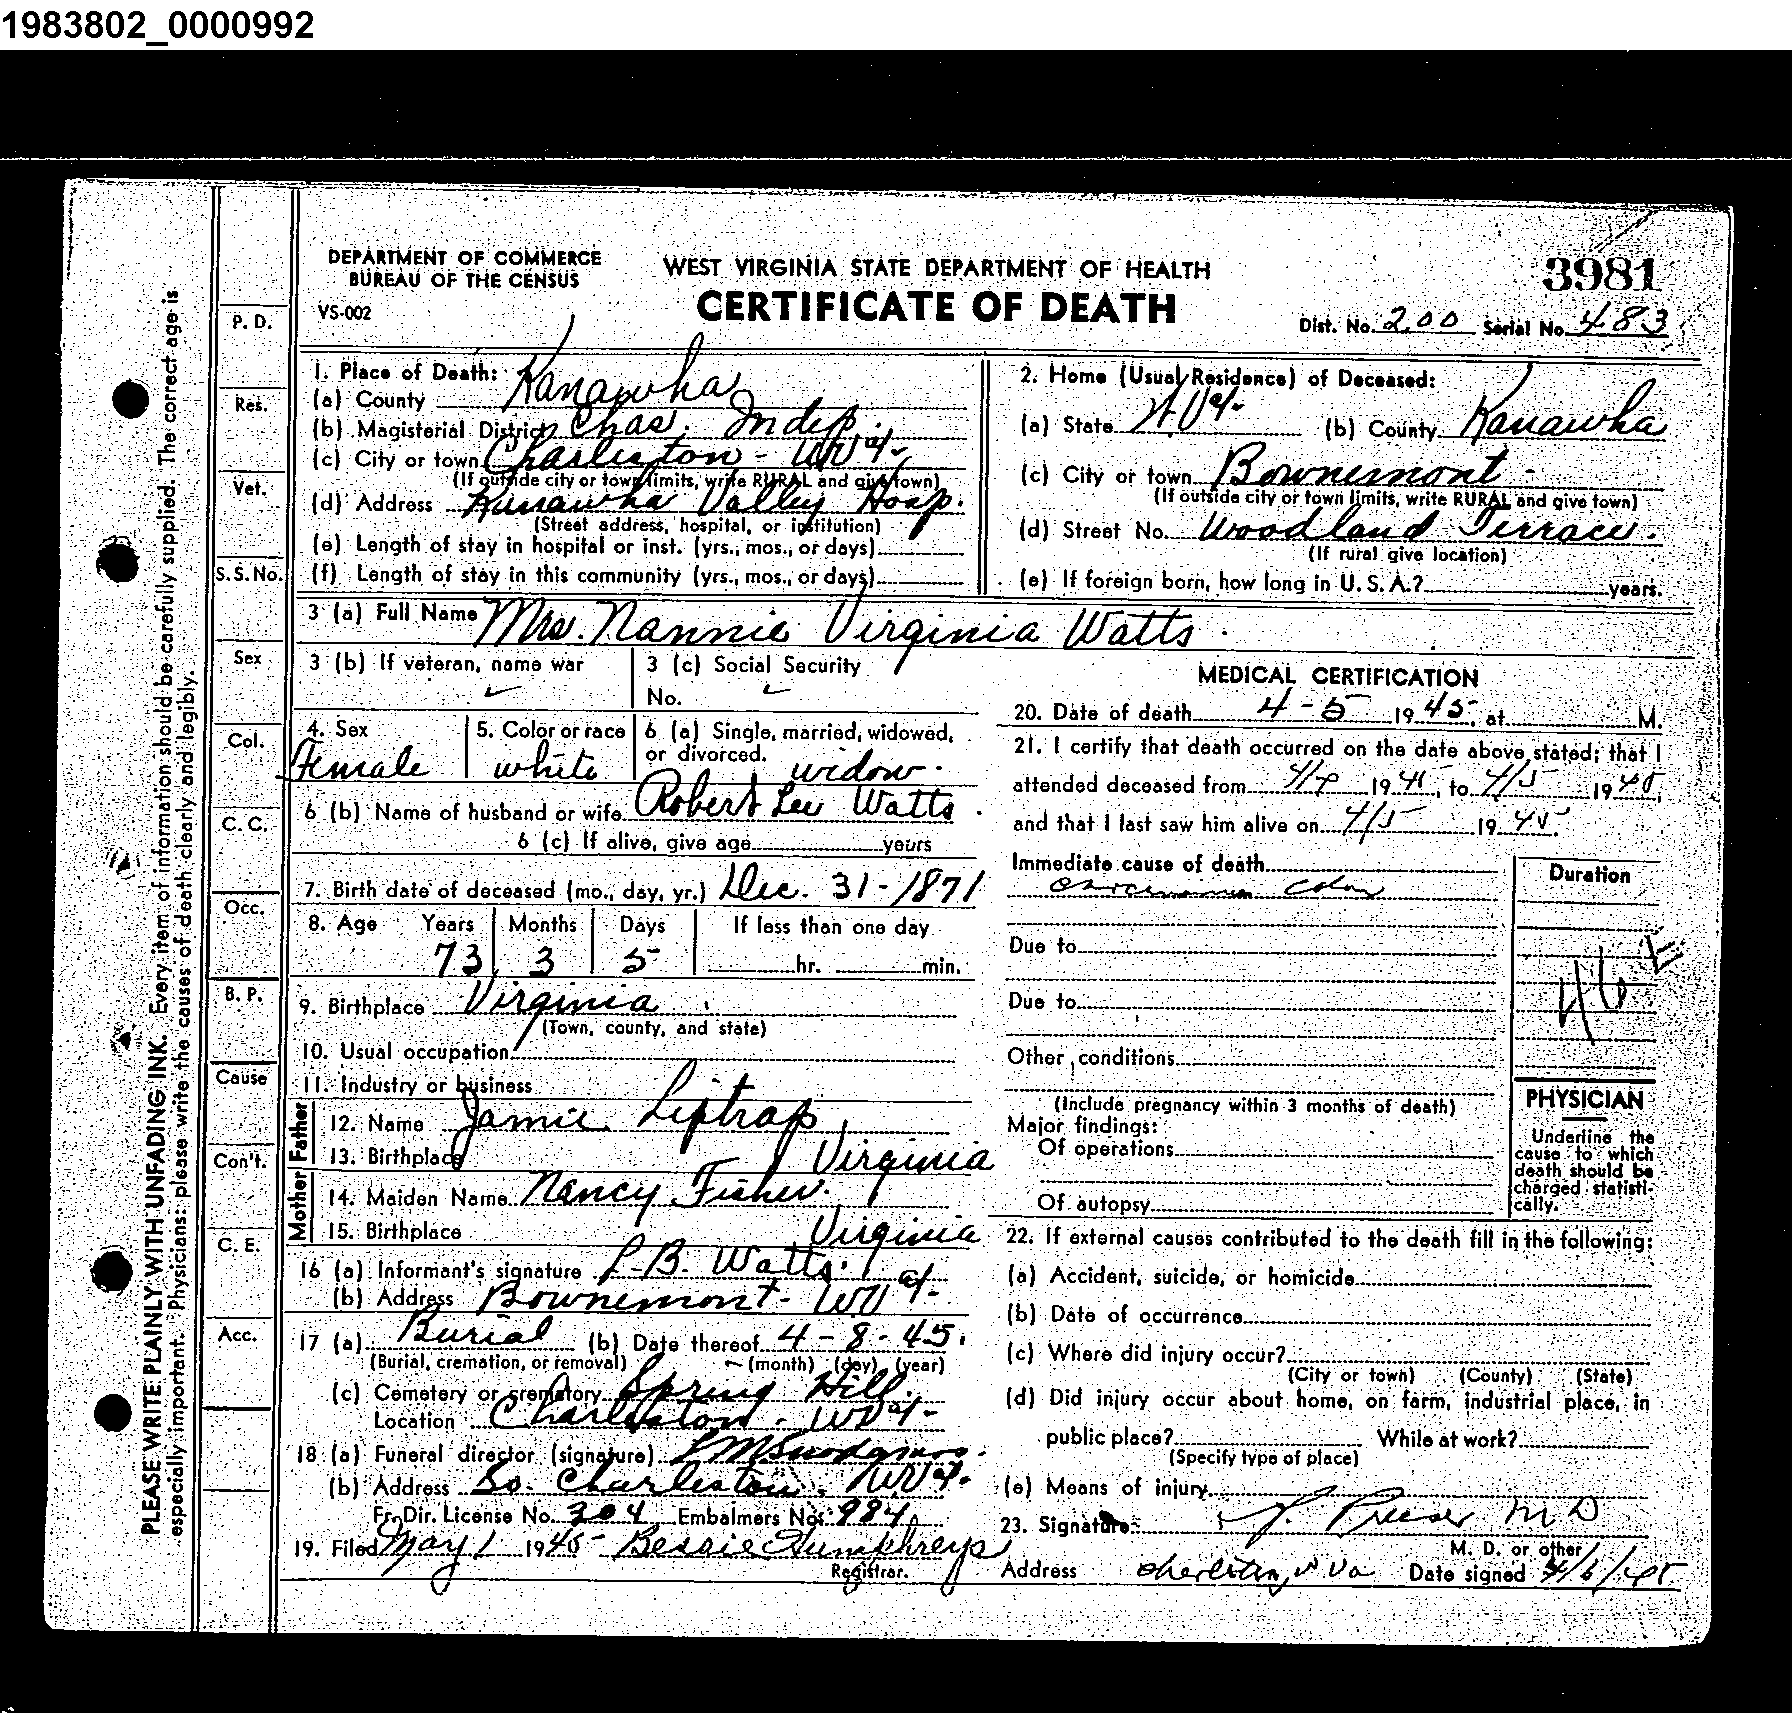 1983802_0000992
DEPARTMENT OF COMMERCE
BUREAU OF THE CENSUS
VS-002
WEST VIRGINIA STATE DEPARTMENT OF HEALTH
CERTIFICATE OF DEATH
3981
Dist. No. 200 Serial No. 483
PLEASE WRITE PLAINLY WITH UNFADING INK. Every item of information should be carefully supplied. The correct age is
especially important. Physicians: please write the causes of death clearly and legibly.
P. D.
Res.
Vet.
S. S. No.
Sex
Col.
C. C.
Occ.
B. P.
Cause
Con't.
C. E.
Acc.
1. Place of Death:
(a) County Kanawha
(b) Magisterial District Chas. Indep.
(c) City or town Charleston - WVa.
(If outside city or town limits, write RURAL and give town)
(d) Address Kanawha Valley Hosp.
(Street address, hospital, or institution)
(e) Length of stay in hospital or inst. (yrs., mos., or days)
(f) Length of stay in this community (yrs., mos., or days)
2. Home (Usual Residence) of Deceased:
(a) State W.Va. (b) County Kanawha
(c) City or town Bownemont -
(If outside city or town limits, write RURAL and give town)
(d) Street No. Woodland Terrace.
(If rural give location)
(e) If foreign born, how long in U. S. A.? years.
3 (a) Full Name Mrs. Nannie Virginia Watts.
3 (b) If veteran, name war
3 (c) Social Security
No.
4. Sex Female
5. Color or race white
6 (a) Single, married, widowed,
or divorced. widow.
6 (b) Name of husband or wife Robert Lee Watts.
6 (c) If alive, give age years
7. Birth date of deceased (mo., day, yr.) Dec. 31-1871
8. Age Years Months Days If less than one day
73 3 5 hr. min.
9. Birthplace Virginia
(Town, county, and state)
10. Usual occupation
11. Industry or business
Father
12. Name Jamie Liptrap
13. Birthplace Virginia
Mother
14. Maiden Name Nancy Fisher.
15. Birthplace Virginia
16 (a) Informant's signature L.B. Watts.
(b) Address Bownemont - WVa.
17 (a) Burial (b) Date thereof 4-8-45.
(Burial, cremation, or removal) (month) (day) (year)
(c) Cemetery or crematory Spring Hill.
Location Charleston - WVa.
18 (a) Funeral director (signature) LM Snodgrass.
(b) Address So. Charleston, WVa.
Fr. Dir. License No. 304 Embalmers No. 984
19. Filed May 1 1945 Bessie Humphreys
Registrar.
MEDICAL CERTIFICATION
20. Date of death 4-5 1945, at M.
21. I certify that death occurred on the date above stated; that I
attended deceased from 4/4 1945, to 4/5 1945,
and that I last saw him alive on 4/5 1945.
Immediate cause of death
carcinoma colon
Duration
Due to
Due to
46 E
Other conditions
(Include pregnancy within 3 months of death)
Major findings:
Of operations
Of autopsy
PHYSICIAN
Underline the
cause to which
death should be
charged statisti-
cally.
22. If external causes contributed to the death fill in the following:
(a) Accident, suicide, or homicide
(b) Date of occurrence
(c) Where did injury occur?
(City or town) (County) (State)
(d) Did injury occur about home, on farm, industrial place, in
public place? While at work?
(Specify type of place)
(e) Means of injury
23. Signature P. Preiser MD
M. D. or other
Address Charleston, W Va Date signed 4/6/45